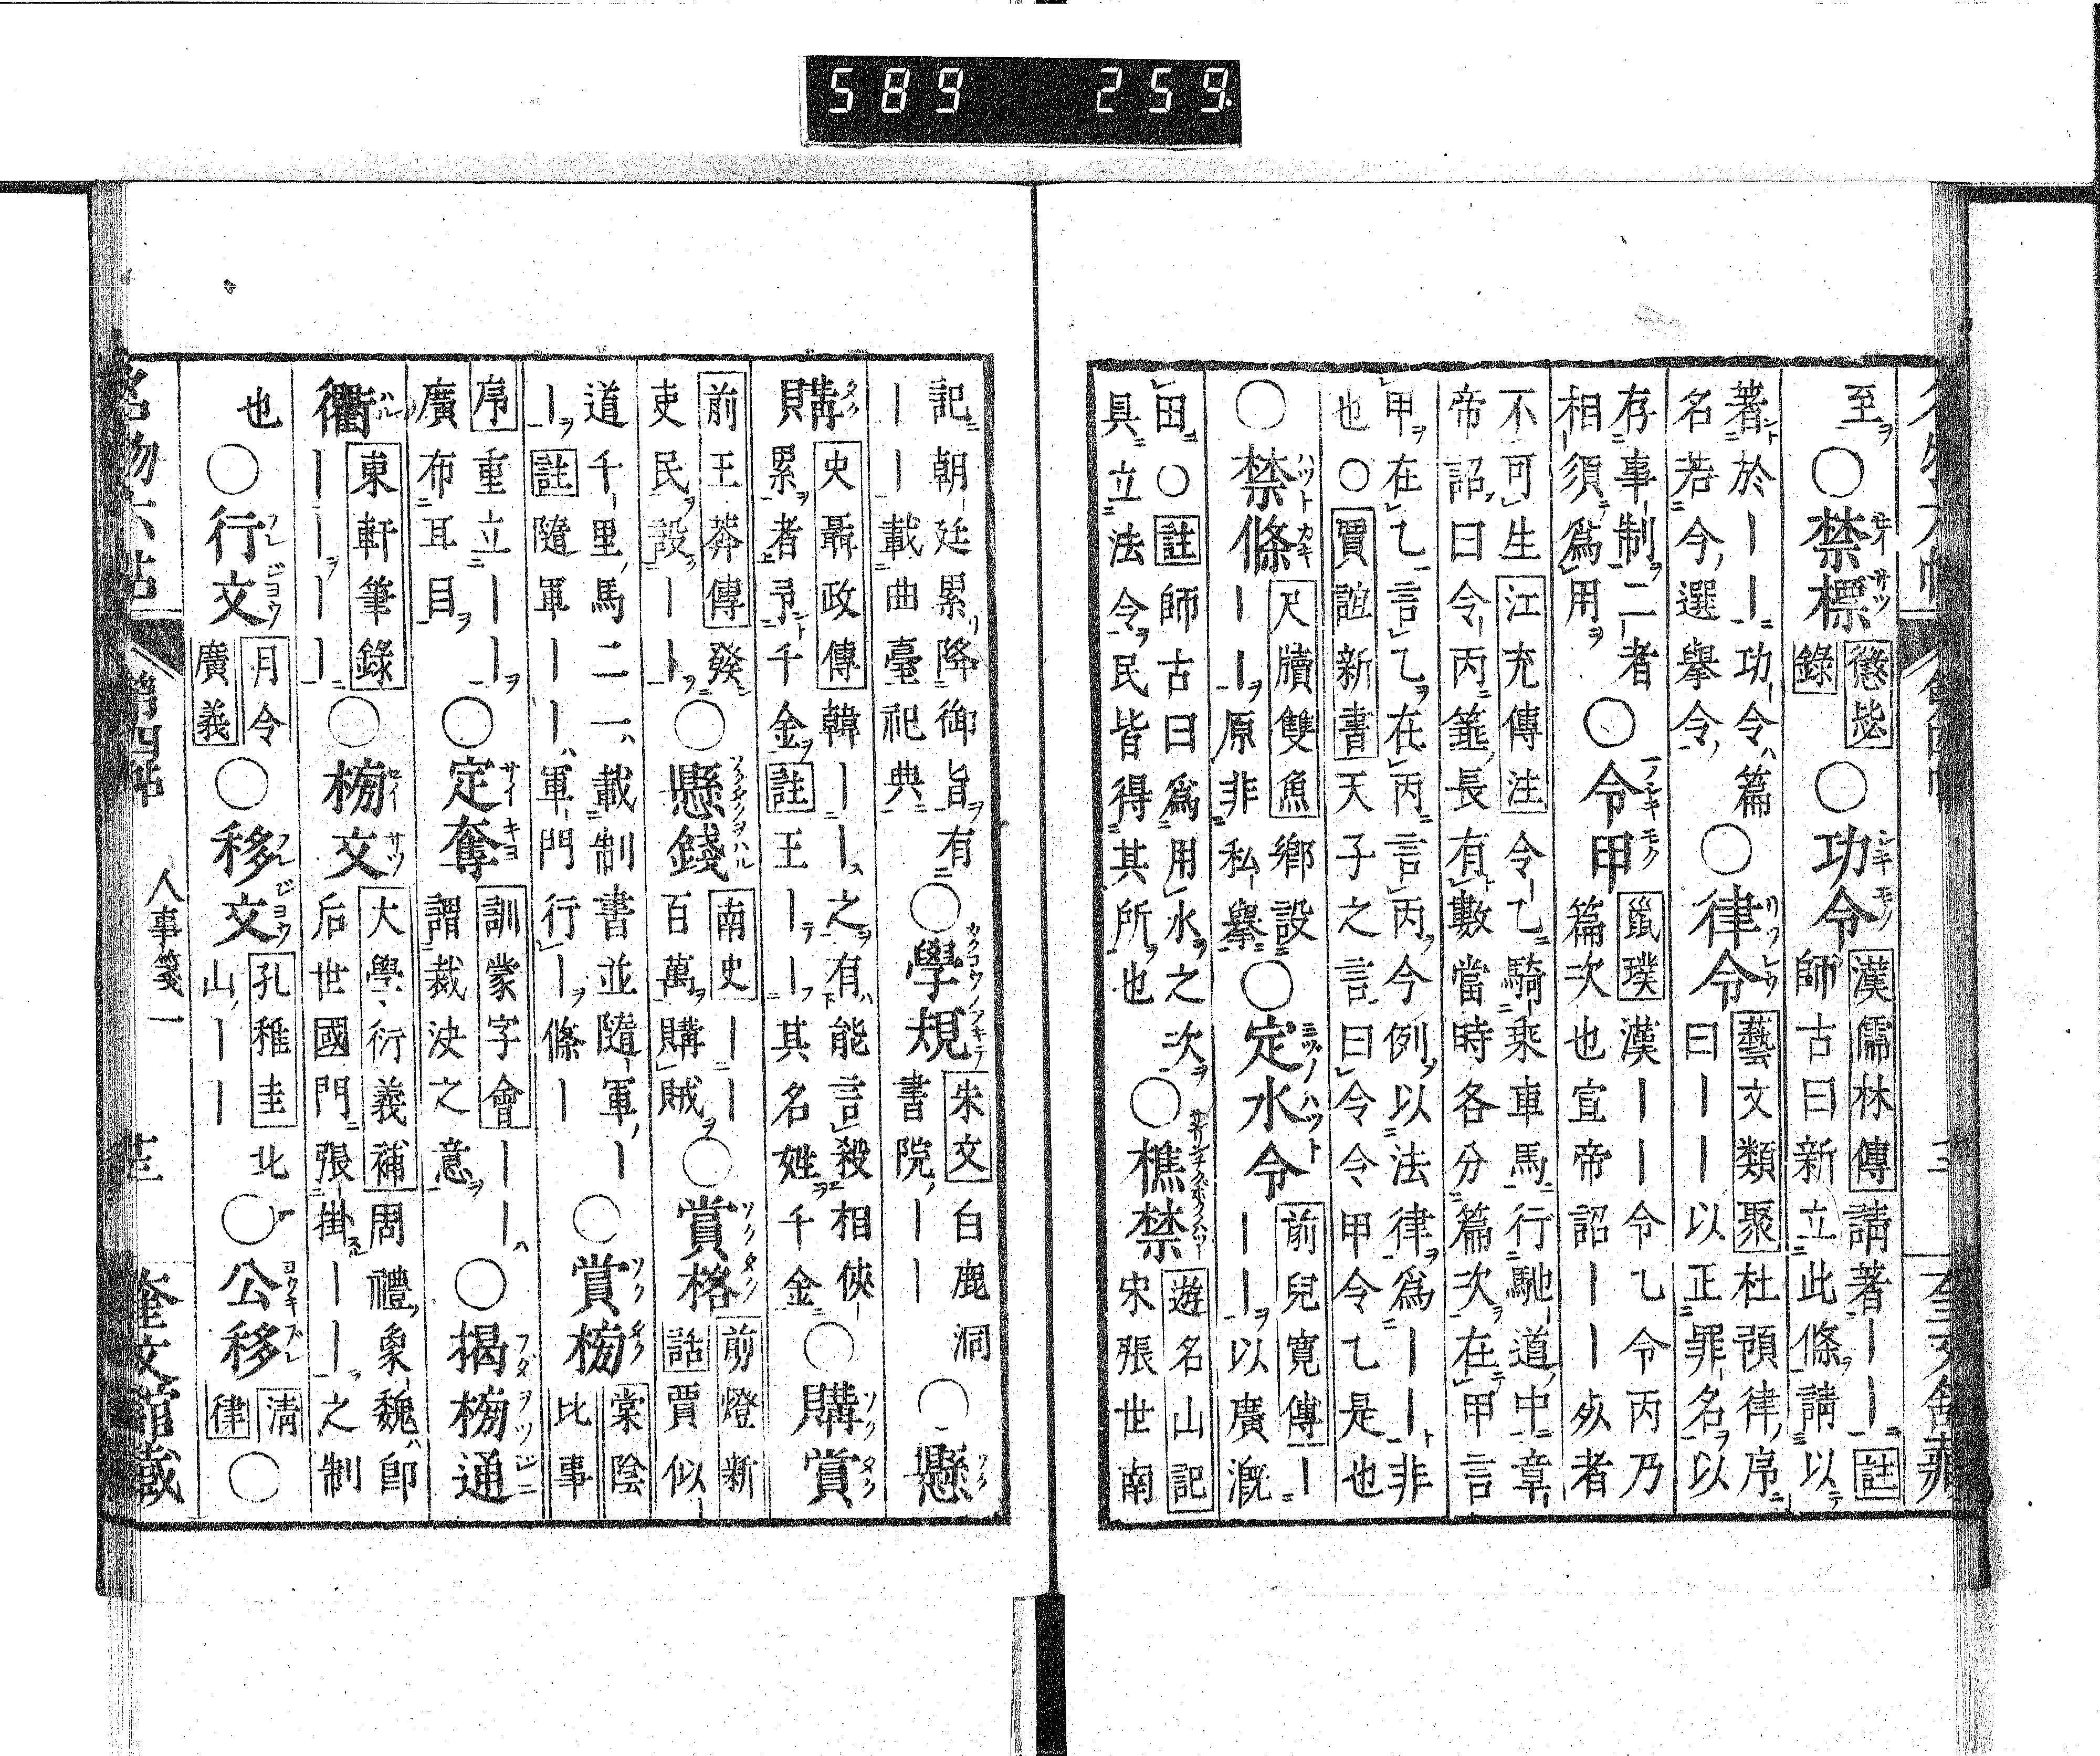 589 259
至ヲ○禁標懲毖錄○功令漢儒林傳請著——註師古曰新立此條請以
著於——功令篇名若今選擧令○律令藝文類聚杜預律序曰——以正罪名以
存事制二者相須爲用○令甲鼠璞漢——令乙令丙乃篇次也宣帝詔——死者
不可生江充傳注令乙騎乘車馬行馳道中章帝詔曰令丙箠長有數當時各分篇次在甲言
甲在乙言乙在丙言丙今例以法律爲——非也○賈誼新書天子之言曰令令甲令乙是也
○禁條尺牘雙魚鄕設——原非私擧○定水令前兒寛傳——以廣漑
田○註師古曰爲用水之次具立法令民皆得其所也○樵禁遊名山記宋張世南
記朝廷累降御旨有———載曲臺祀典○學規朱文白鹿洞書院——○懸
購史聶政傳韓——之有能言殺相俠累者予千金註王——其名姓千金○購賞
前王莽傳發吏民設——○懸錢南史——百萬購賊○賞格剪燈新話賈似
道千里馬二一載制書並隨軍——註隨軍——軍門行—條—○賞榜棠陰比事
序重立——廣布耳目○定奪訓蒙字會——謂裁決之意○揭榜通
衢東軒筆錄————○榜文大學衍義補周禮象魏卽后世國門張掛——之制
也○行文月令廣義○移文孔稚圭北山——○公移淸律○
名物六帖 第四帖 人事箋一 奎文館藏